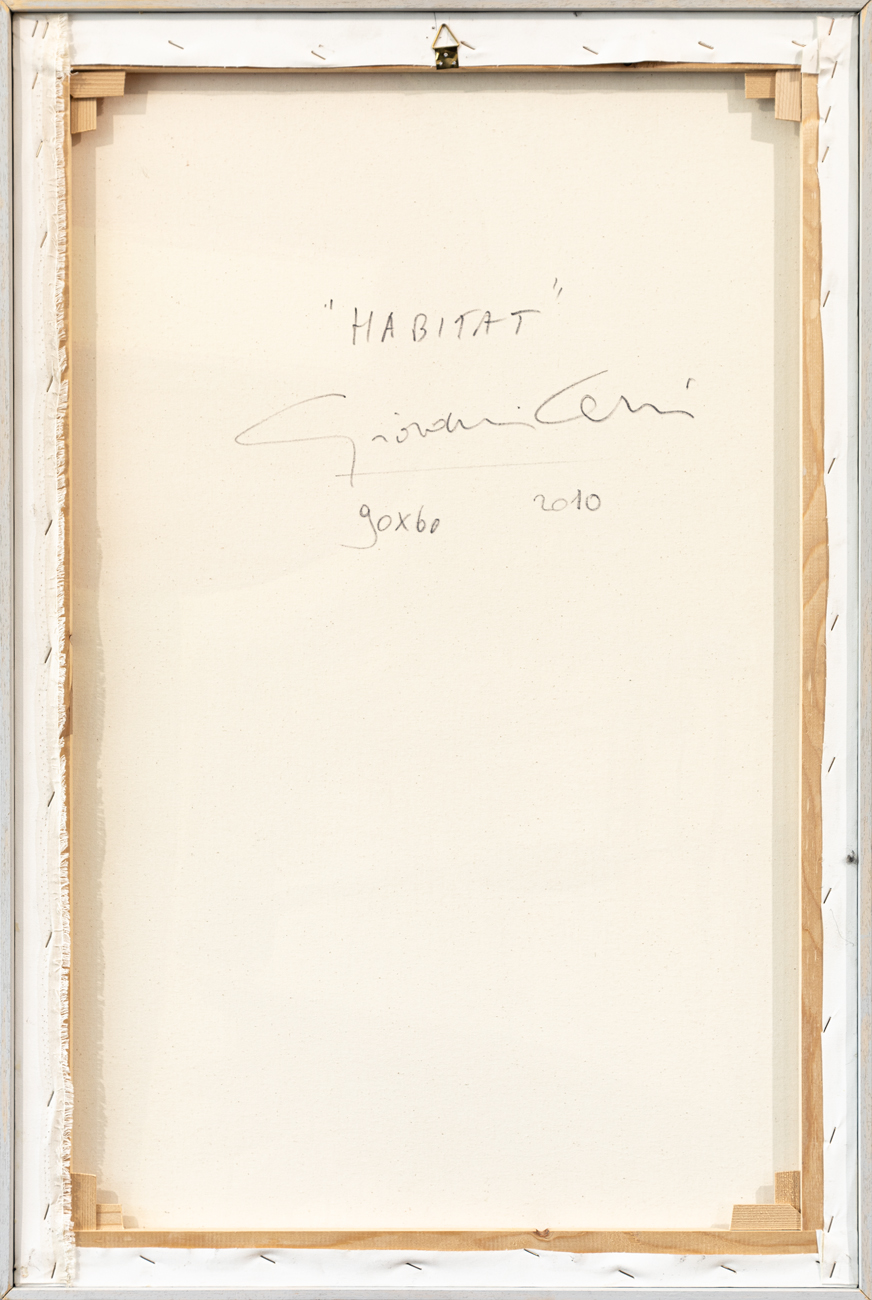 "HABITAT"
Giovanni Cerri
90x60 2010